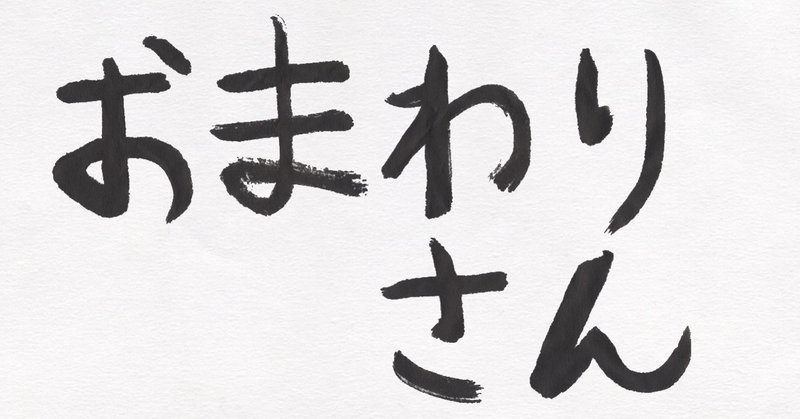 おまわり
さん